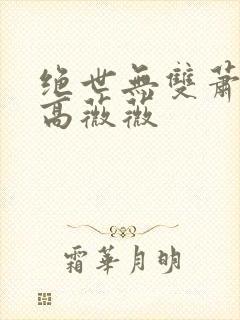 绝世無雙蕭
高薇薇
霜華月明